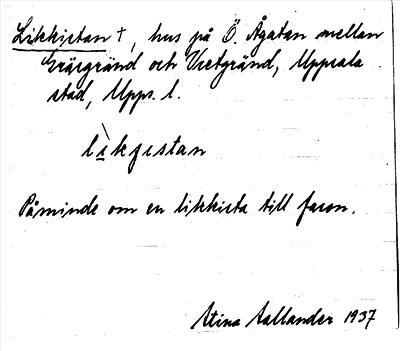 Likkistan †, hus på Ö. Ågatan mellan
Gräsgränd och Vretgränd, Uppsala
stad, Upps. l.
lìkɟistan
Påminde om en likkista till facon.
Stina Sallander 1937